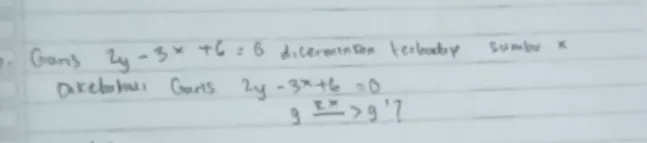 Garis 2y - 3x + 6 = 0 dicerminkan terhadap sumbu x
Diketahui Garis 2y - 3x + 6 = 0
g → g'?